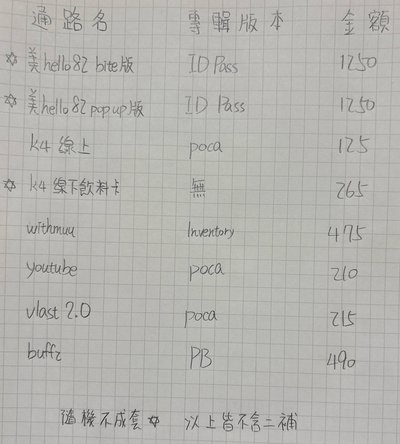 通路名 專輯版本 金額
☆ 美hello82 bite版 ID Pass 1250
☆ 美hello82 popup版 ID Pass 1250
k4 線上 poca 125
☆ k4 線下飲料卡 無 265
withmuu Inventory 475
youtube poca 210
vlast 2.0 poca 215
buffz PB 490
隨機不成套☆ 以上皆不含二補